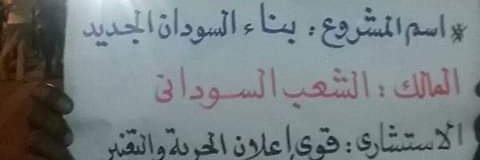 * اسم المشروع : بناء السودان الجديد
المالك : الشعب السوداني
الاستشاري : قوى إعلان الحرية والتغيير